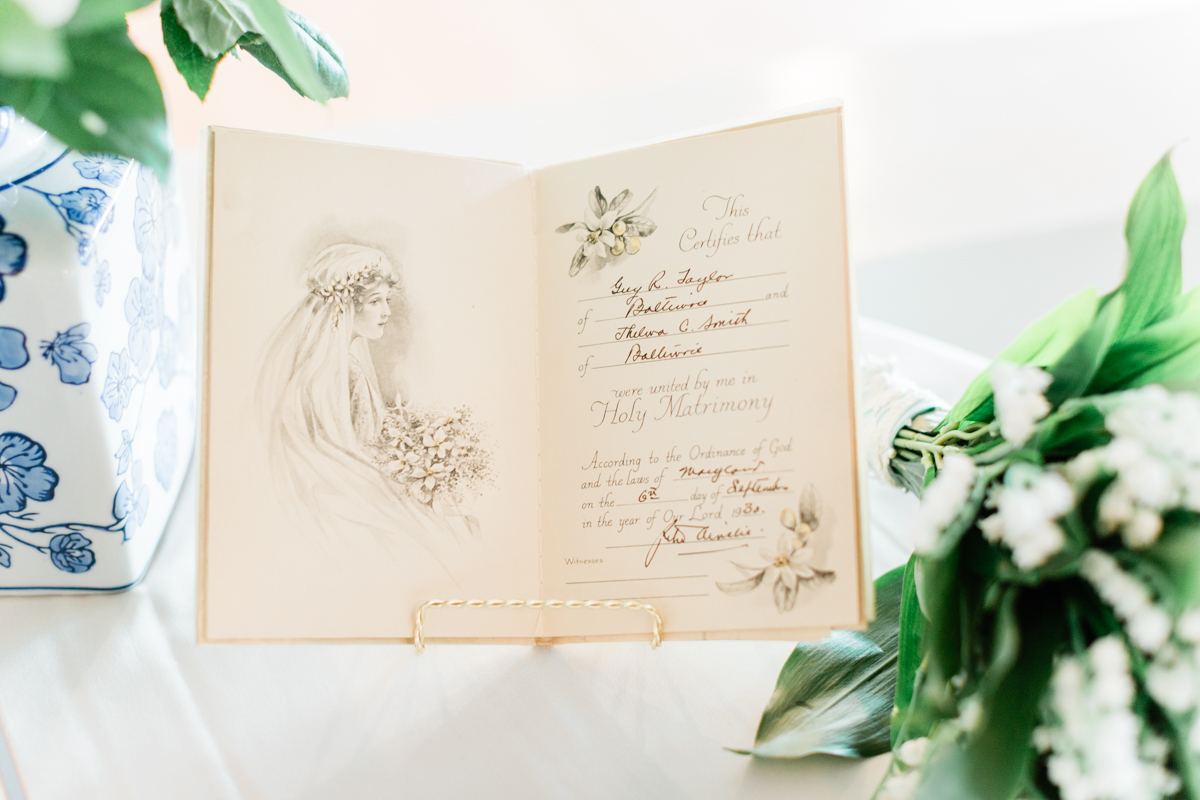 This
Certifies that
Guy R. Taylor
of Baltimore and
Thelma C. Smith
of Baltimore
were united by me in
Holy Matrimony
According to the Ordinance of God
and the laws of Maryland
on the 6th day of September
in the year of Our Lord 1930.
John Ainslie
Witnesses